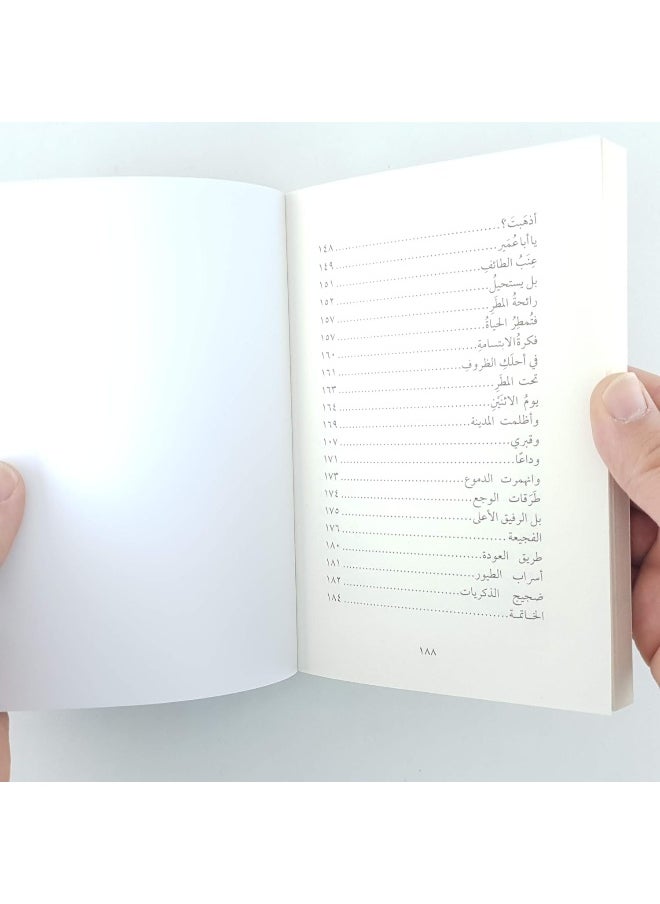 أذهَبتَ؟ ١٤٨
يا أبا عُمَيرٍ ١٤٩
عِنَبُ الطائفِ ١٥١
بل يستحيلُ ١٥٢
رائحةُ المطَرِ ١٥٧
فتُمطِرُ الحياةُ ١٥٧
فكرةُ الابتسامةِ ١٦٠
في أحلَكِ الظروفِ ١٦١
تحت المطَرِ ١٦٣
يومُ الاثنَيْنِ ١٦٤
وأظلمت المدينة ١٦٩
وقبري ١٠٧
وداعًا ١٧١
وانهمرت الدموع ١٧٣
طَرَقات الوجع ١٧٤
بل الرفيق الأعلى ١٧٥
الفجيعة ١٧٦
طريق العودة ١٨٠
أسراب الطيور ١٨١
ضجيج الذكريات ١٨٢
الخاتمة ١٨٤
١٨٨